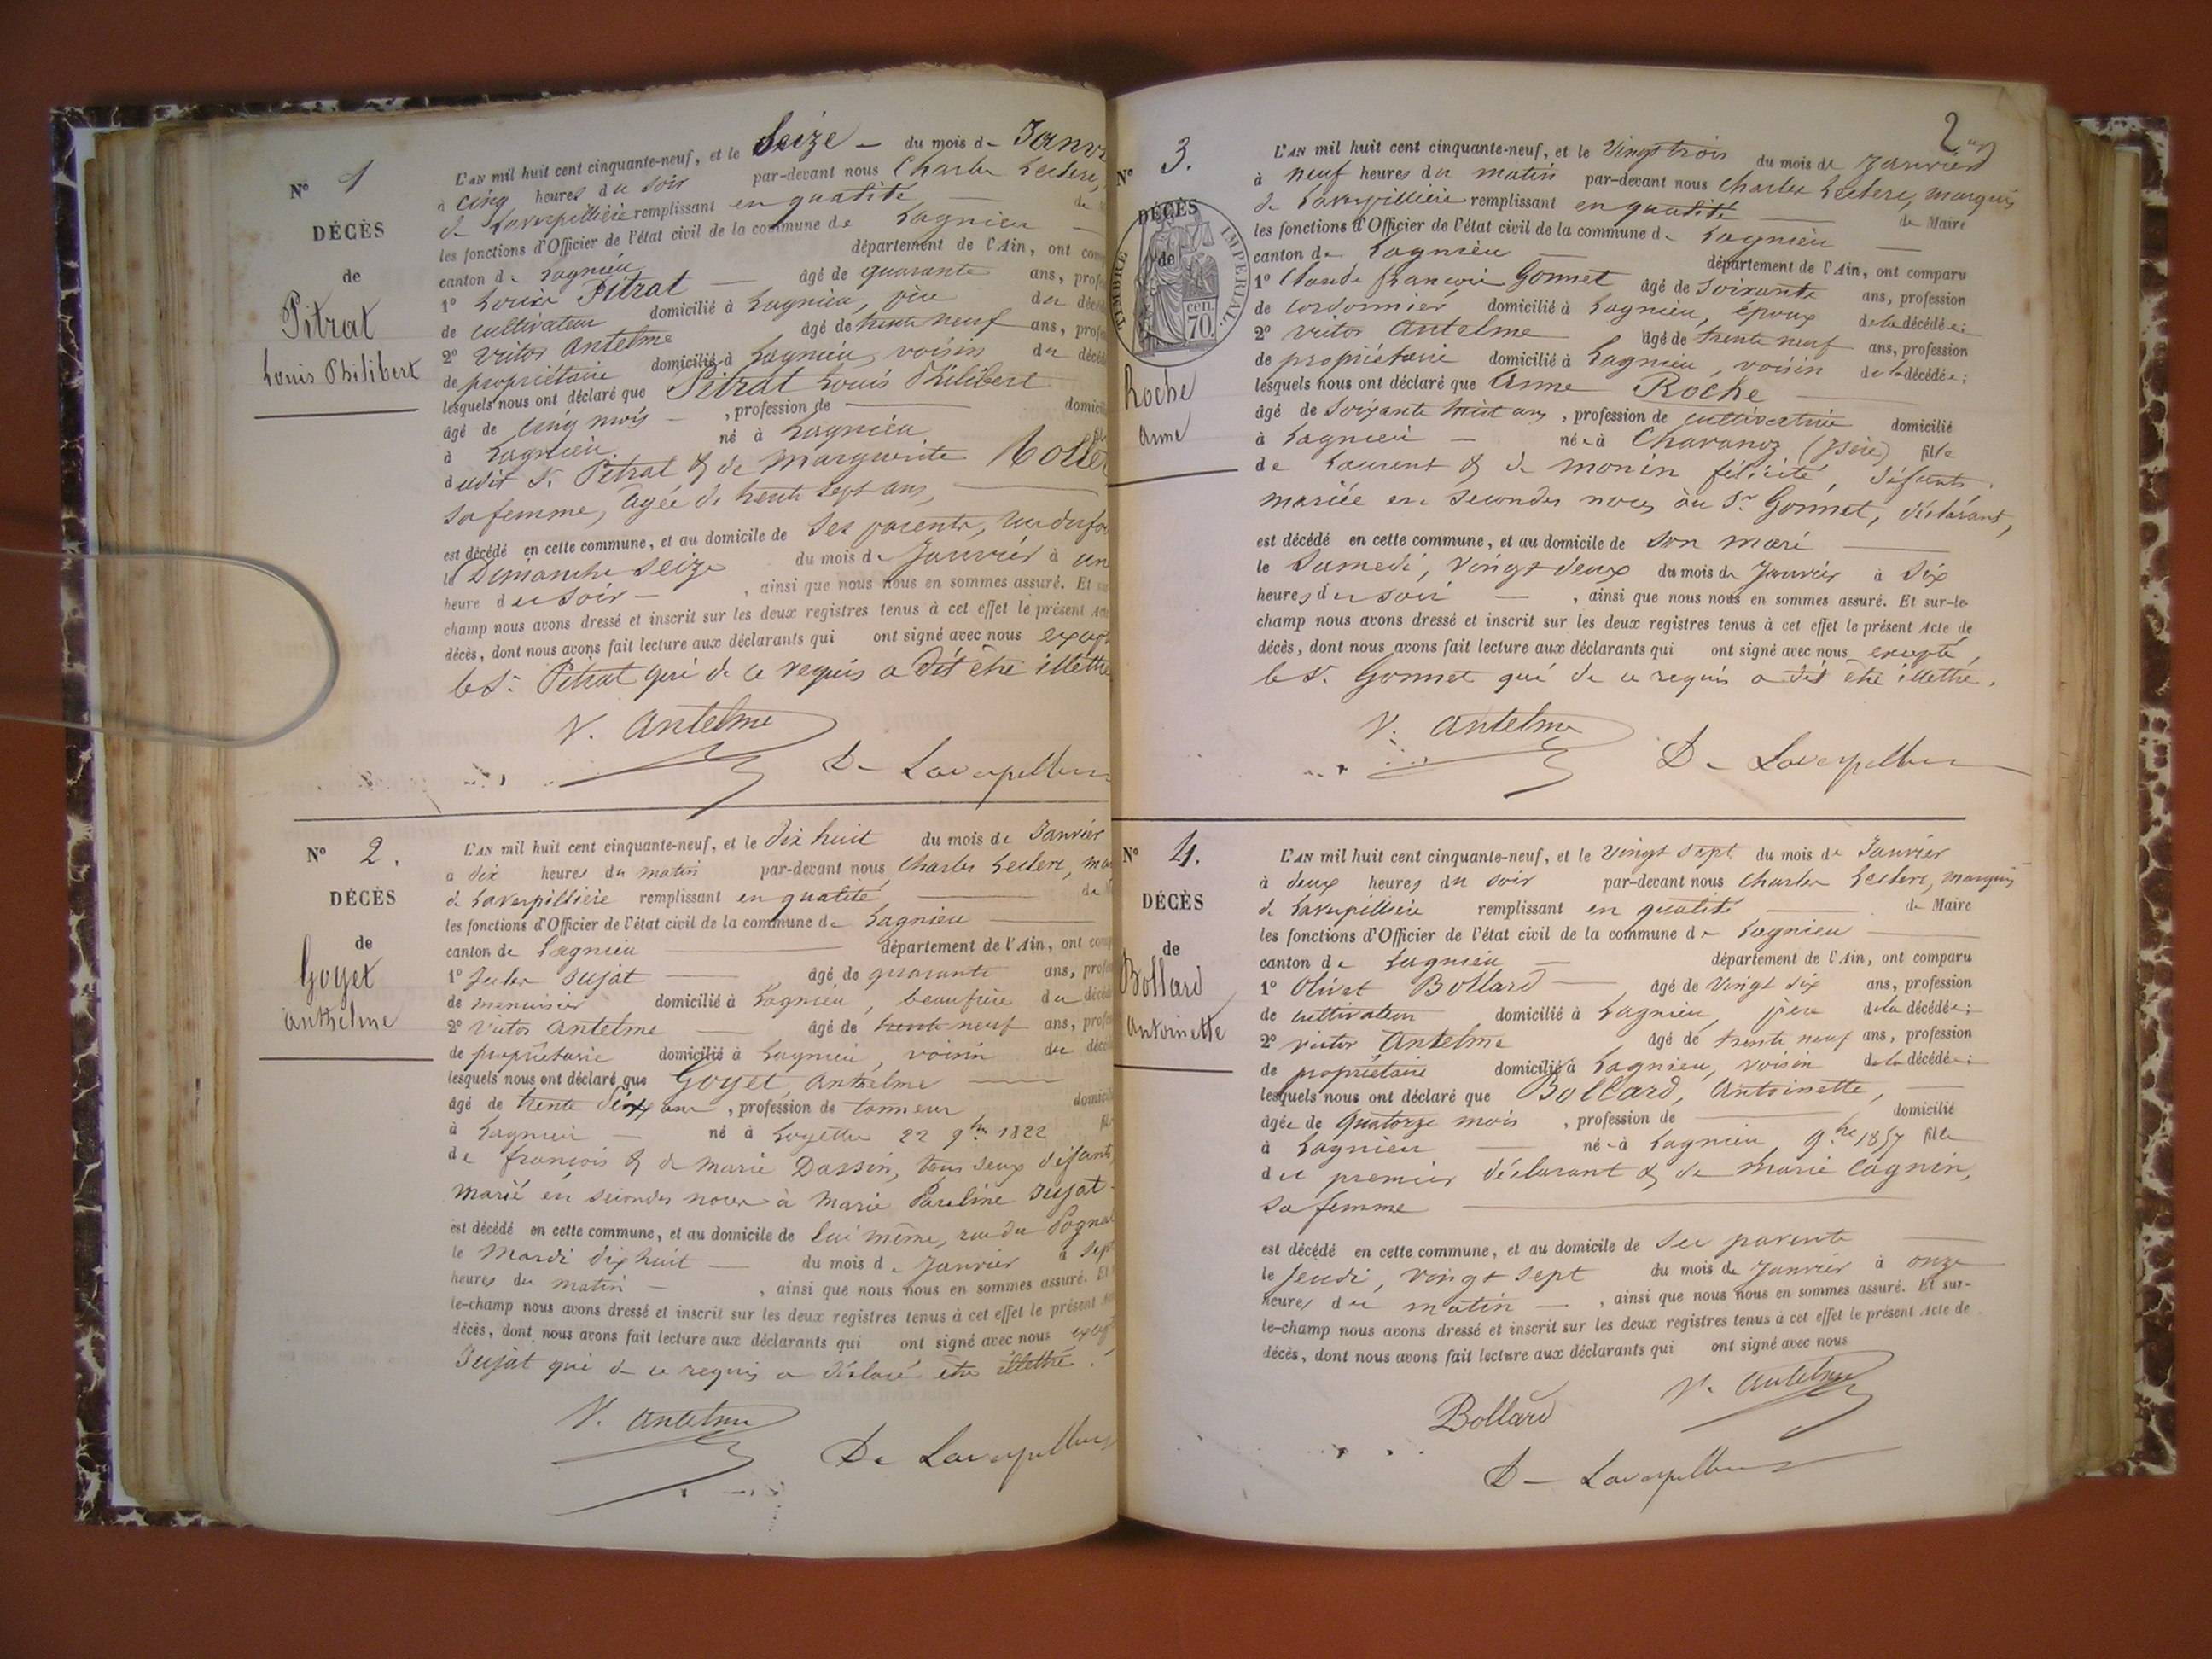 N° 1
DÉCÈS
de
Pitrat
Louis Philibert
L'AN mil huit cent cinquante-neuf, et le Seize du mois de Janv
à cinq heures du soir par-devant nous Charles Leclerc,
de Laverpillière remplissant en qualité de
les fonctions d'Officier de l'état civil de la commune de Lagnieu
canton de Lagnieu département de l'Ain, ont com
1° Louis Pitrat âgé de quarante ans, profe
de cultivateur domicilié à Lagnieu, père du décé
2° Victor Antelme âgé de trente neuf ans, profe
de propriétaire domicilié à Lagnieu, voisin du décé
lesquels nous ont déclaré que Pitrat Louis Philibert
âgé de cinq mois, profession de domicil
à Lagnieu né à Lagnieu fil
dudit Sr. Pitrat & de Marguerite
sa femme, âgée de trente sept ans,
est décédé en cette commune, et au domicile de ses parents,
le Dimanche seize du mois de Janvier à un
heure du soir, ainsi que nous nous en sommes assuré. Et sur
champ nous avons dressé et inscrit sur les deux registres tenus à cet effet le présent Acte
décès, dont nous avons fait lecture aux déclarants qui ont signé avec nous except
le Sr. Pitrat qui de ce requis a dit être illettré
V. Antelme
De Laverpillière
N° 2.
DÉCÈS
de
Goyet
Anthelme
L'AN mil huit cent cinquante-neuf, et le dix huit du mois de Janvier
à dix heures du matin par-devant nous Charles Leclerc, mar
de Laverpillière remplissant en qualité de
les fonctions d'Officier de l'état civil de la commune de Lagnieu
canton de Lagnieu département de l'Ain, ont comp
1° Jujat âgé de quarante ans, profe
de menuisier domicilié à Lagnieu, beaufrère du décéd
2° Victor Antelme âgé de trente neuf ans, profe
de propriétaire domicilié à Lagnieu, voisin du décé
lesquels nous ont déclaré que Goyet Anthelme
âgé de trente six ans, profession de tanneur domicil
à Lagnieu né à Loyettes 22 9bre 1822 fil
de françois & de Marie Dassin, tous deux défunts
marié en secondes noces à Marie Pauline Jujat
est décédé en cette commune, et au domicile de lui même, rue du
le Mardi dix huit du mois de Janvier à sept
heures du matin, ainsi que nous nous en sommes assuré. Et
le-champ nous avons dressé et inscrit sur les deux registres tenus à cet effet le présent
décès, dont nous avons fait lecture aux déclarants qui ont signé avec nous except
Jujat qui de ce requis a déclaré être illettré.
V. Antelme
De Laverpillière
2
N° 3.
DÉCÈS
de
TIMBRE IMPERIAL.
cen. 70
Roche
Anne
L'AN mil huit cent cinquante-neuf, et le vingt trois du mois de Janvier
à neuf heures du matin par-devant nous Charles Leclerc, marquis
de Laverpillière remplissant en qualité de Maire
les fonctions d'Officier de l'état civil de la commune de Lagnieu
canton de Lagnieu département de l'Ain, ont comparu
1° Claude françois Gonnet âgé de soixante ans, profession
de cordonnier domicilié à Lagnieu, époux de la décédée;
2° Victor Antelme âgé de trente neuf ans, profession
de propriétaire domicilié à Lagnieu, voisin de la décédée;
lesquels nous ont déclaré que Anne Roche
âgé de soixante huit ans, profession de cultivatrice domicilié
à Lagnieu née à Chavanoz (Isère) fille
de Laurent & de Monin félicité, défunts.
mariée en secondes noces au Sr. Gonnet, déclarant,
est décédé en cette commune, et au domicile de son mari
le Samedi, vingt deux du mois de Janvier à six
heures du soir, ainsi que nous nous en sommes assuré. Et sur-le-
champ nous avons dressé et inscrit sur les deux registres tenus à cet effet le présent Acte de
décès, dont nous avons fait lecture aux déclarants qui ont signé avec nous excepté
le Sr. Gonnet qui de ce requis a dit être illettré.
V. Antelme
De Laverpillière
N° 4.
DÉCÈS
de
Bollard
Antoinette
L'AN mil huit cent cinquante-neuf, et le vingt sept du mois de Janvier
à deux heures du soir par-devant nous Charles Leclerc, marquis
de Laverpillière remplissant en qualité de Maire
les fonctions d'Officier de l'état civil de la commune de Lagnieu
canton de Lagnieu département de l'Ain, ont comparu
1° Olivet Bollard âgé de vingt six ans, profession
de cultivateur domicilié à Lagnieu, père de la décédée;
2° Victor Antelme âgé de trente neuf ans, profession
de propriétaire domicilié à Lagnieu, voisin de la décédée;
lesquels nous ont déclaré que Bollard, Antoinette,
âgée de quatorze mois, profession de domicilié
à Lagnieu née à Lagnieu, 9bre 1857 fille
du premier déclarant & de Marie Cagnin,
sa femme
est décédé en cette commune, et au domicile de ses parents
le Jeudi, vingt sept du mois de Janvier à onze
heures du matin, ainsi que nous nous en sommes assuré. Et sur-
le-champ nous avons dressé et inscrit sur les deux registres tenus à cet effet le présent Acte de
décès, dont nous avons fait lecture aux déclarants qui ont signé avec nous
V. Antelme
Bollard
De Laverpillière